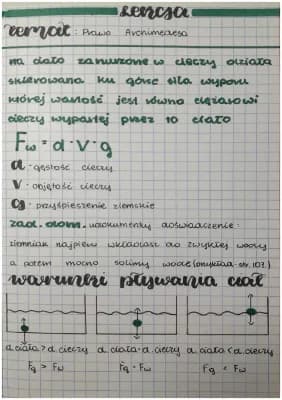 Lekcja
Temat: Prawo Archimedesa
na ciało zanurzone w cieczy działa
skierowana ku górze siła wyporu
której wartość jest równa ciężarowi
cieczy wypartej przez to ciało
Fw = d · v · g
d - gęstość cieczy
v - objętość cieczy
g - przyśpieszenie ziemskie
zad. dom. udokumentuj doświadczenie:
ziemniak najpierw wkładasz do zwykłej wody
a potem mocno solimy wodę (przykład - str. 107)
warunki pływania ciał
d ciała > d cieczy d ciała = d cieczy d ciała < d cieczy
Fg > Fw Fg = Fw Fg < Fw